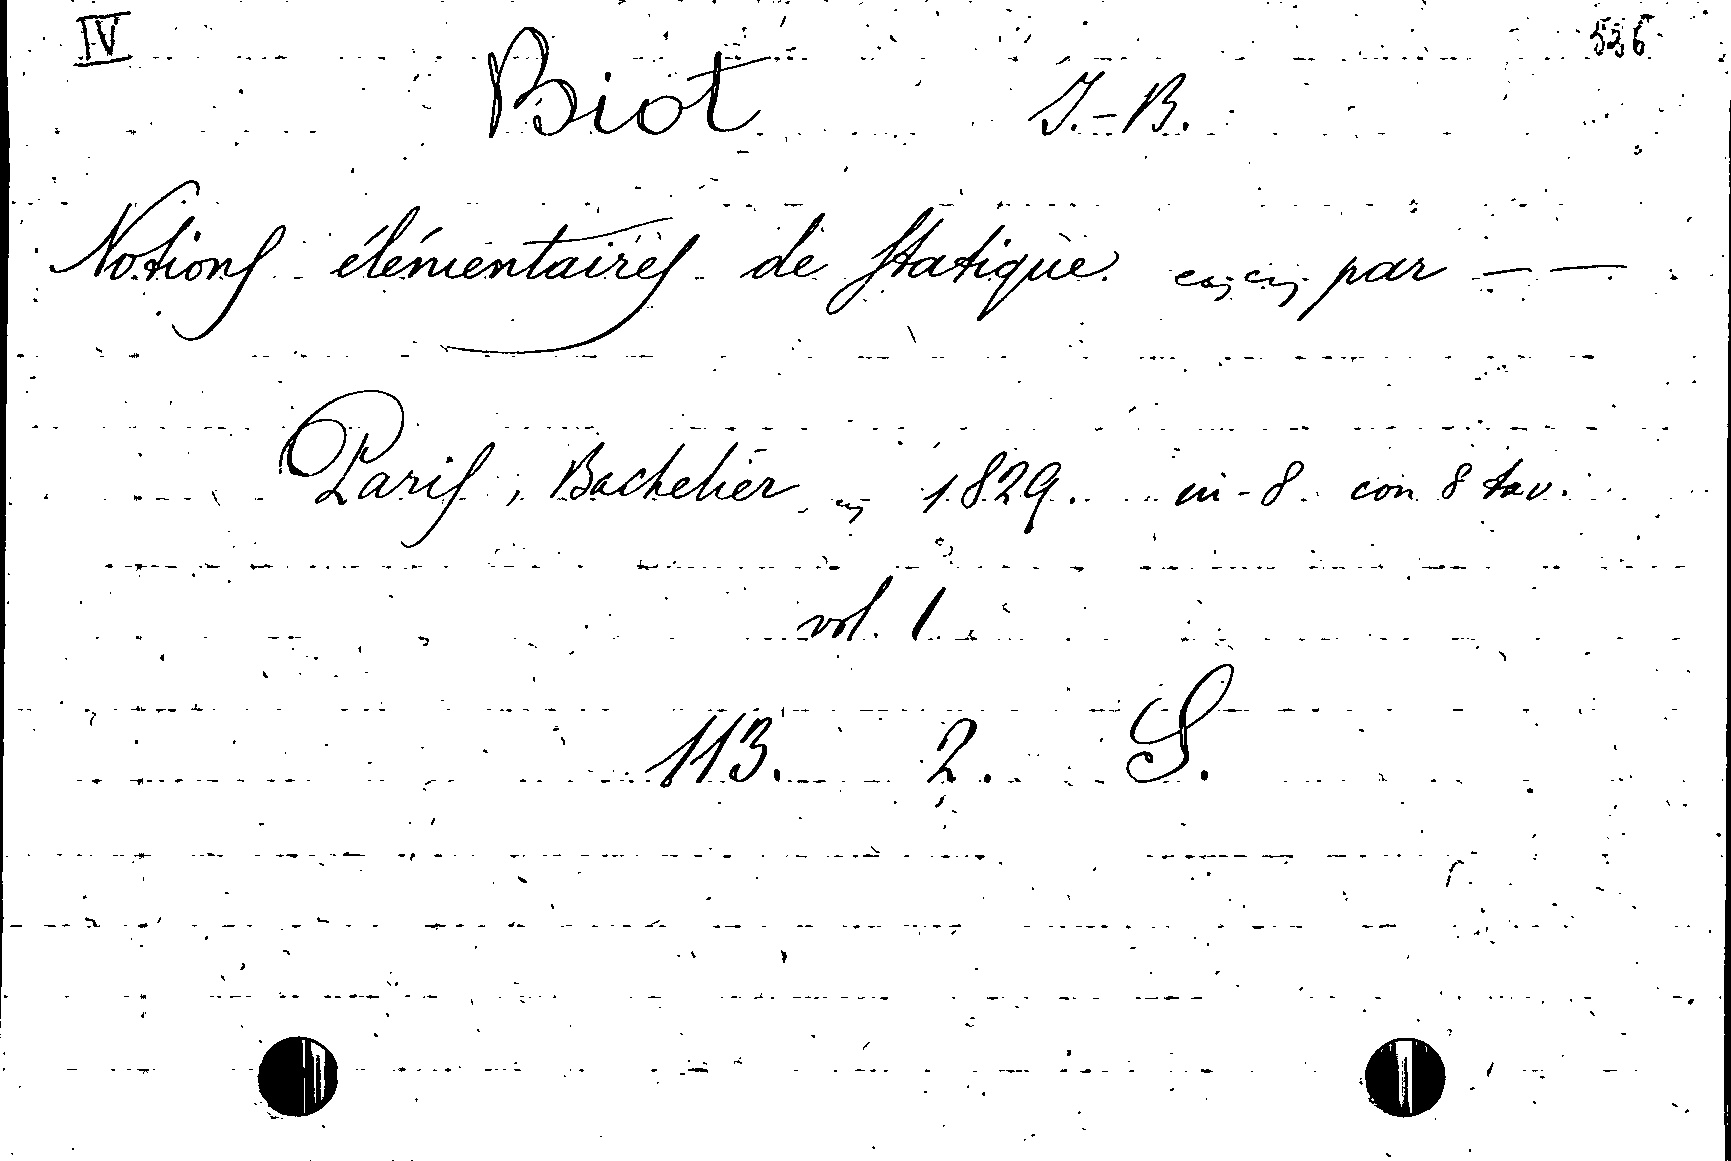 IV 536
Biot J.-B.
Notions élémentaires de statique par — —
Paris, Bachelier 1829. in-8 con 8 tav.
vol. 1
113. 2. S.